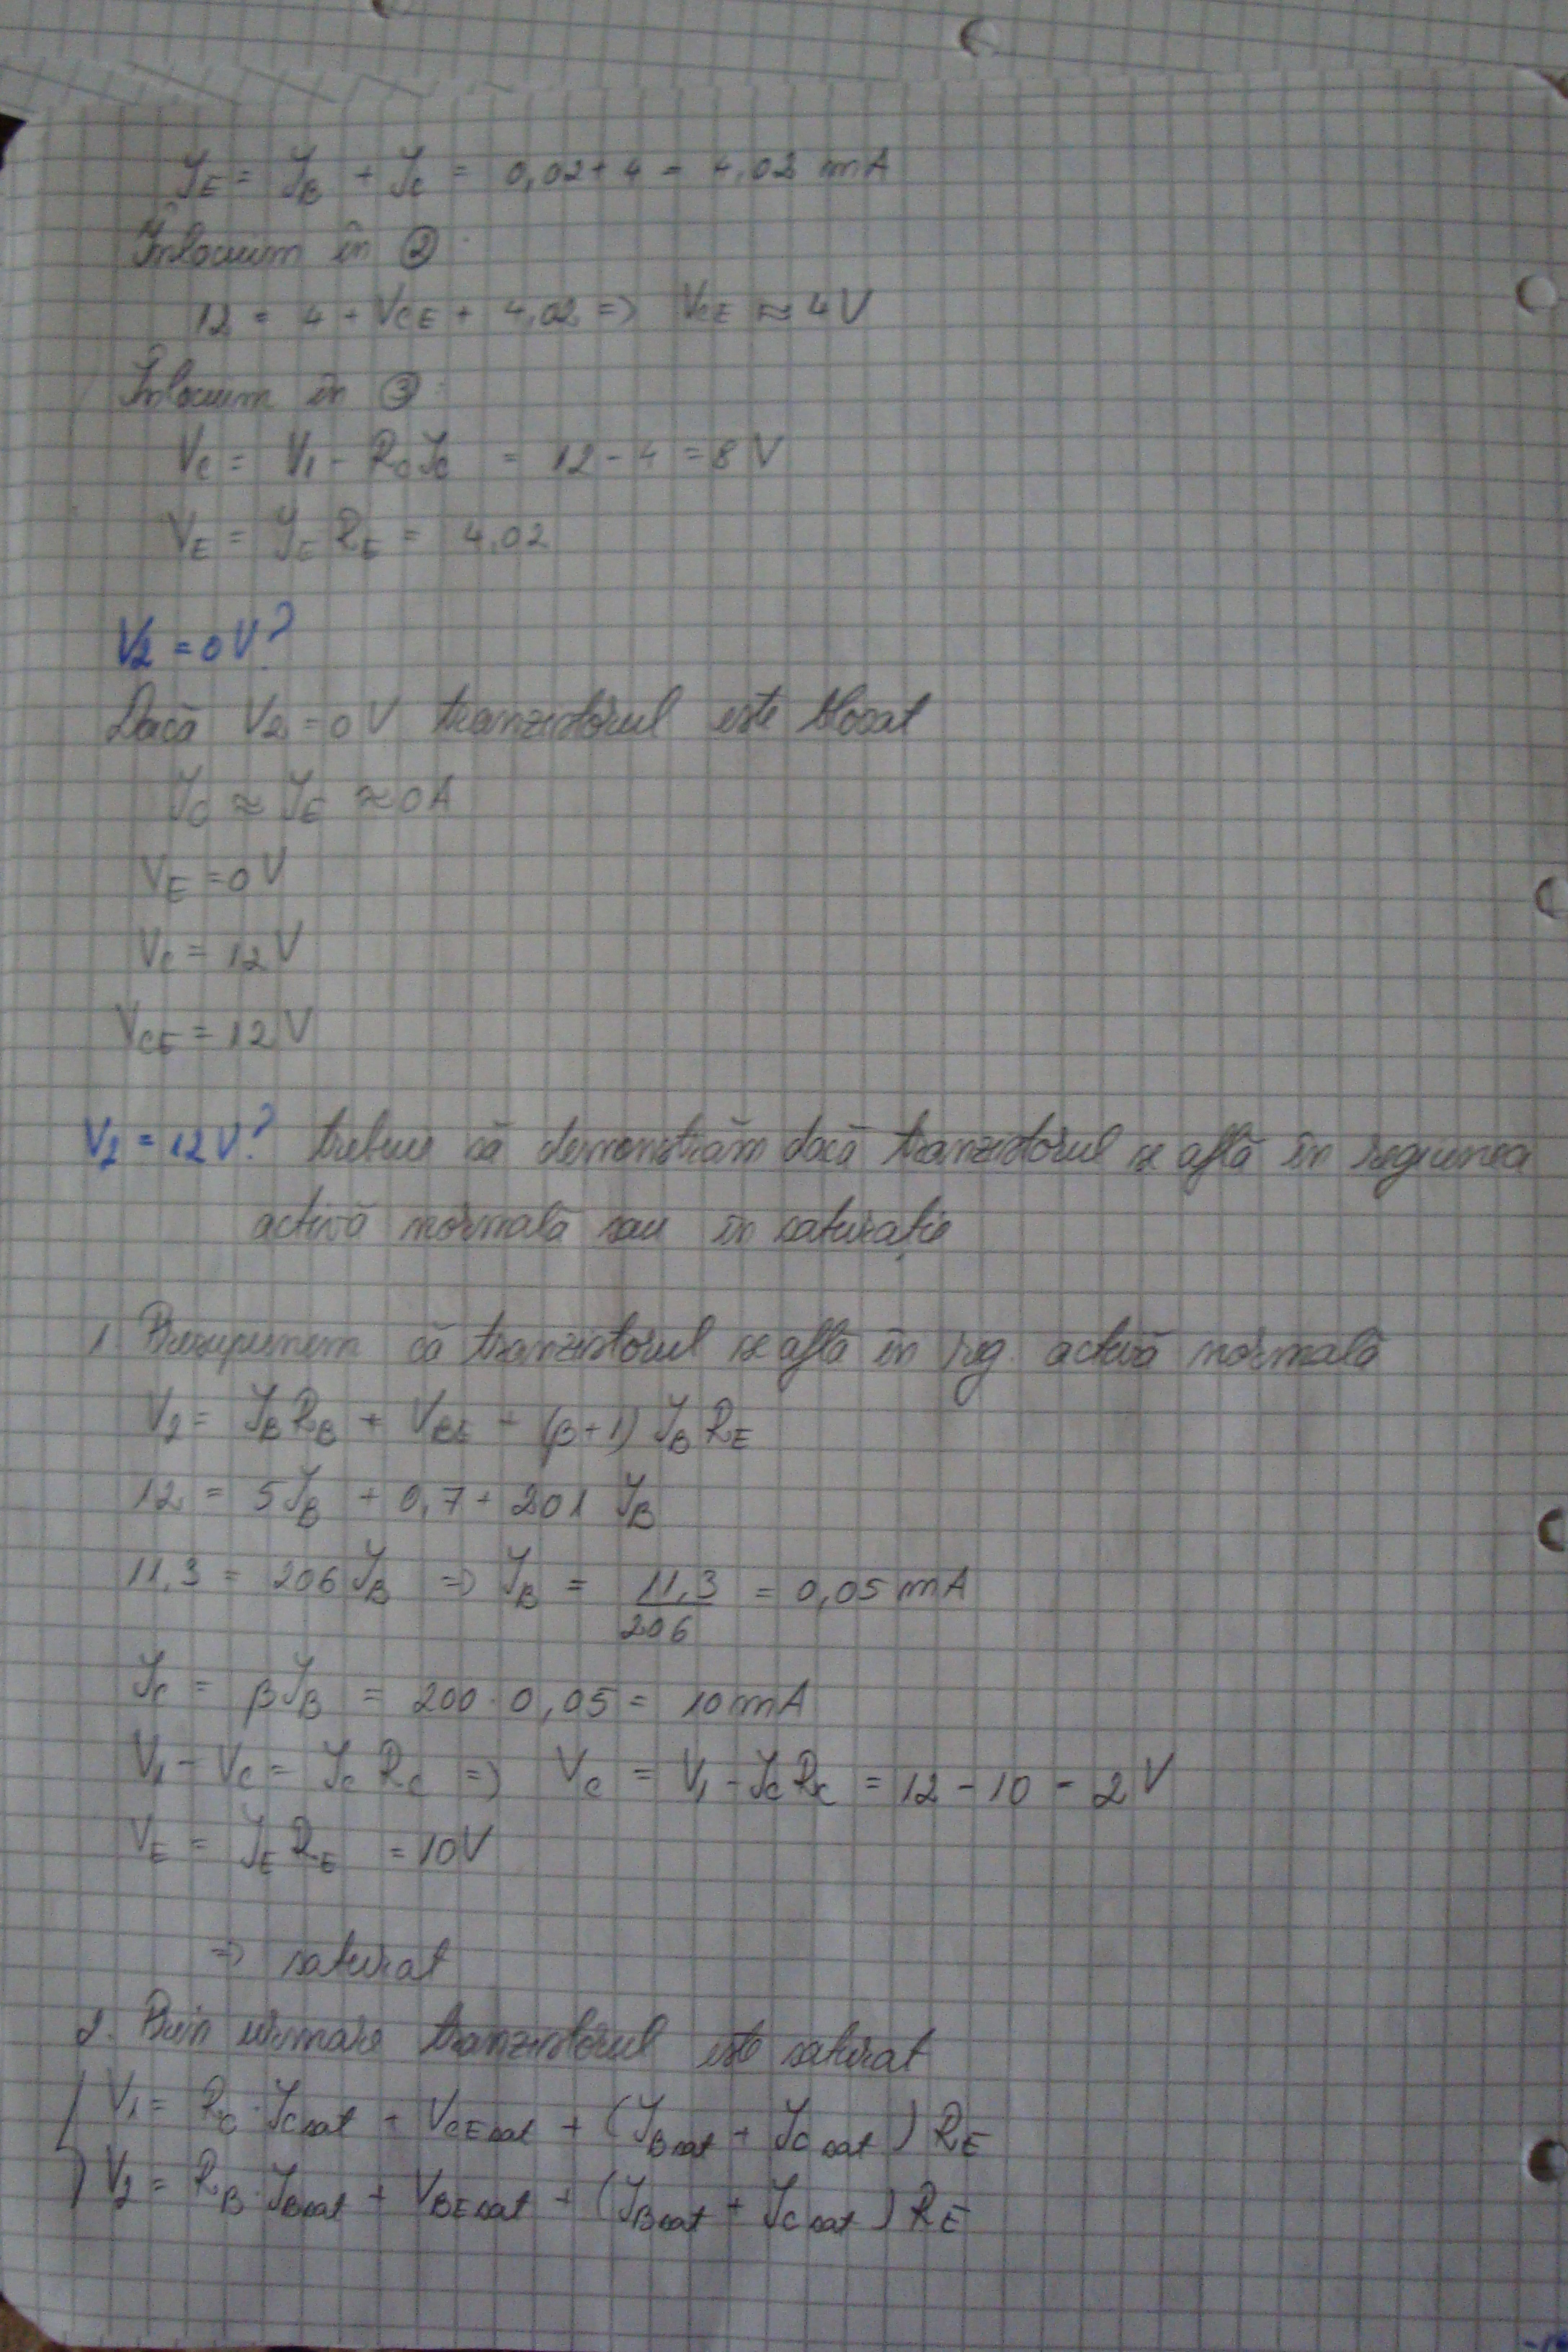 I_E = I_B + I_C = 0,02 + 4 = 4,02 mA
Înlocuim în ② :
12 = 4 + V_CE + 4,02 => V_CE ≈ 4 V
Înlocuim în ③ :
V_C = V_1 - R_C I_C = 12 - 4 = 8 V
V_E = I_E R_E = 4,02
V_2 = 0 V ?
Dacă V_2 = 0 V tranzistorul este blocat
I_C ≈ I_E ≈ 0 A
V_E = 0 V
V_C = 12 V
V_CE = 12 V
V_2 = 12 V ? trebuie să demonstrăm dacă tranzistorul se află în regiunea
activă normală sau în saturație
1. Presupunem că tranzistorul se află în reg. activă normală
V_2 = I_B R_B + V_BE + (β+1) I_B R_E
12 = 5 I_B + 0,7 + 201 I_B
11,3 = 206 I_B => I_B = 11,3 / 206 = 0,05 mA
I_C = β I_B = 200 · 0,05 = 10 mA
V_1 - V_C = I_C R_C => V_C = V_1 - I_C R_C = 12 - 10 = 2 V
V_E = I_E R_E = 10 V
=> saturat
2. Prin urmare tranzistorul este saturat
V_1 = R_C · I_C sat + V_CE sat + (I_B sat + I_C sat) R_E
V_2 = R_B · I_B sat + V_BE sat + (I_B sat + I_C sat) R_E